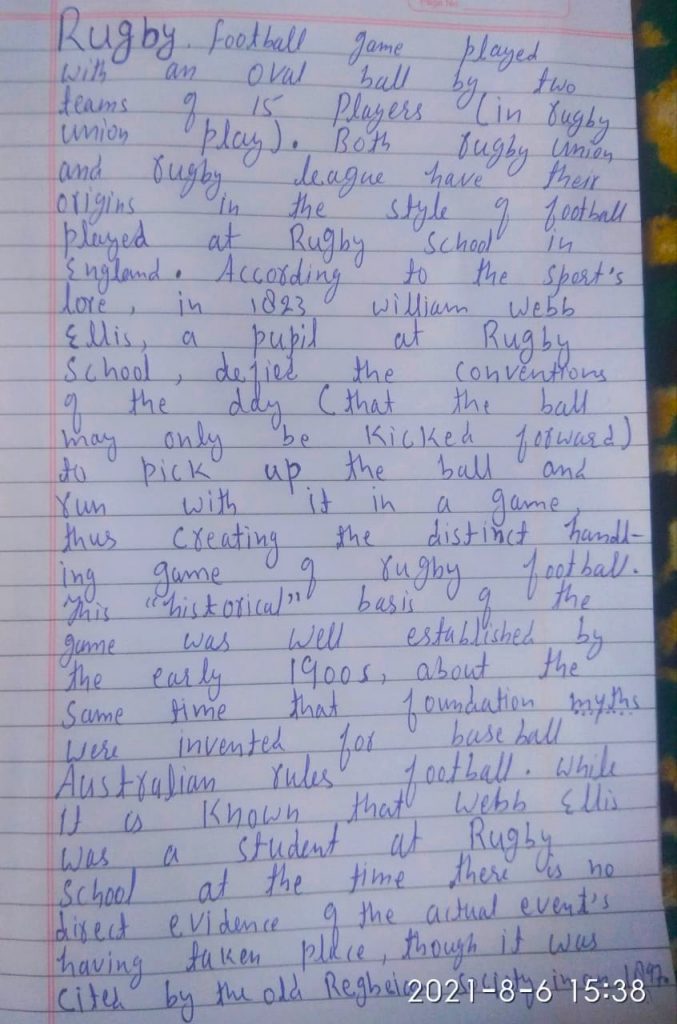 Page No.
Rugby. Football game played
with an oval ball by two
teams of 15 Players (in rugby
union play). Both rugby union
and rugby league have their
origins in the style of football
played at Rugby School in
England. According to the sport's
lore, in 1823 William Webb
Ellis, a pupil at Rugby
School, defied the conventions
of the day (that the ball
may only be kicked forward)
to pick up the ball and
run with it in a game,
thus creating the distinct handl-
ing game of rugby football.
This "historical" basis of the
game was well established by
the early 1900s, about the
same time that foundation myths
were invented for baseball
Australian rules football. While
it is known that Webb Ellis
was a student at Rugby
School at the time there is no
direct evidence of the actual event's
having taken place, though it was
cited by the old Society in an 1897
2021-8-6 15:38